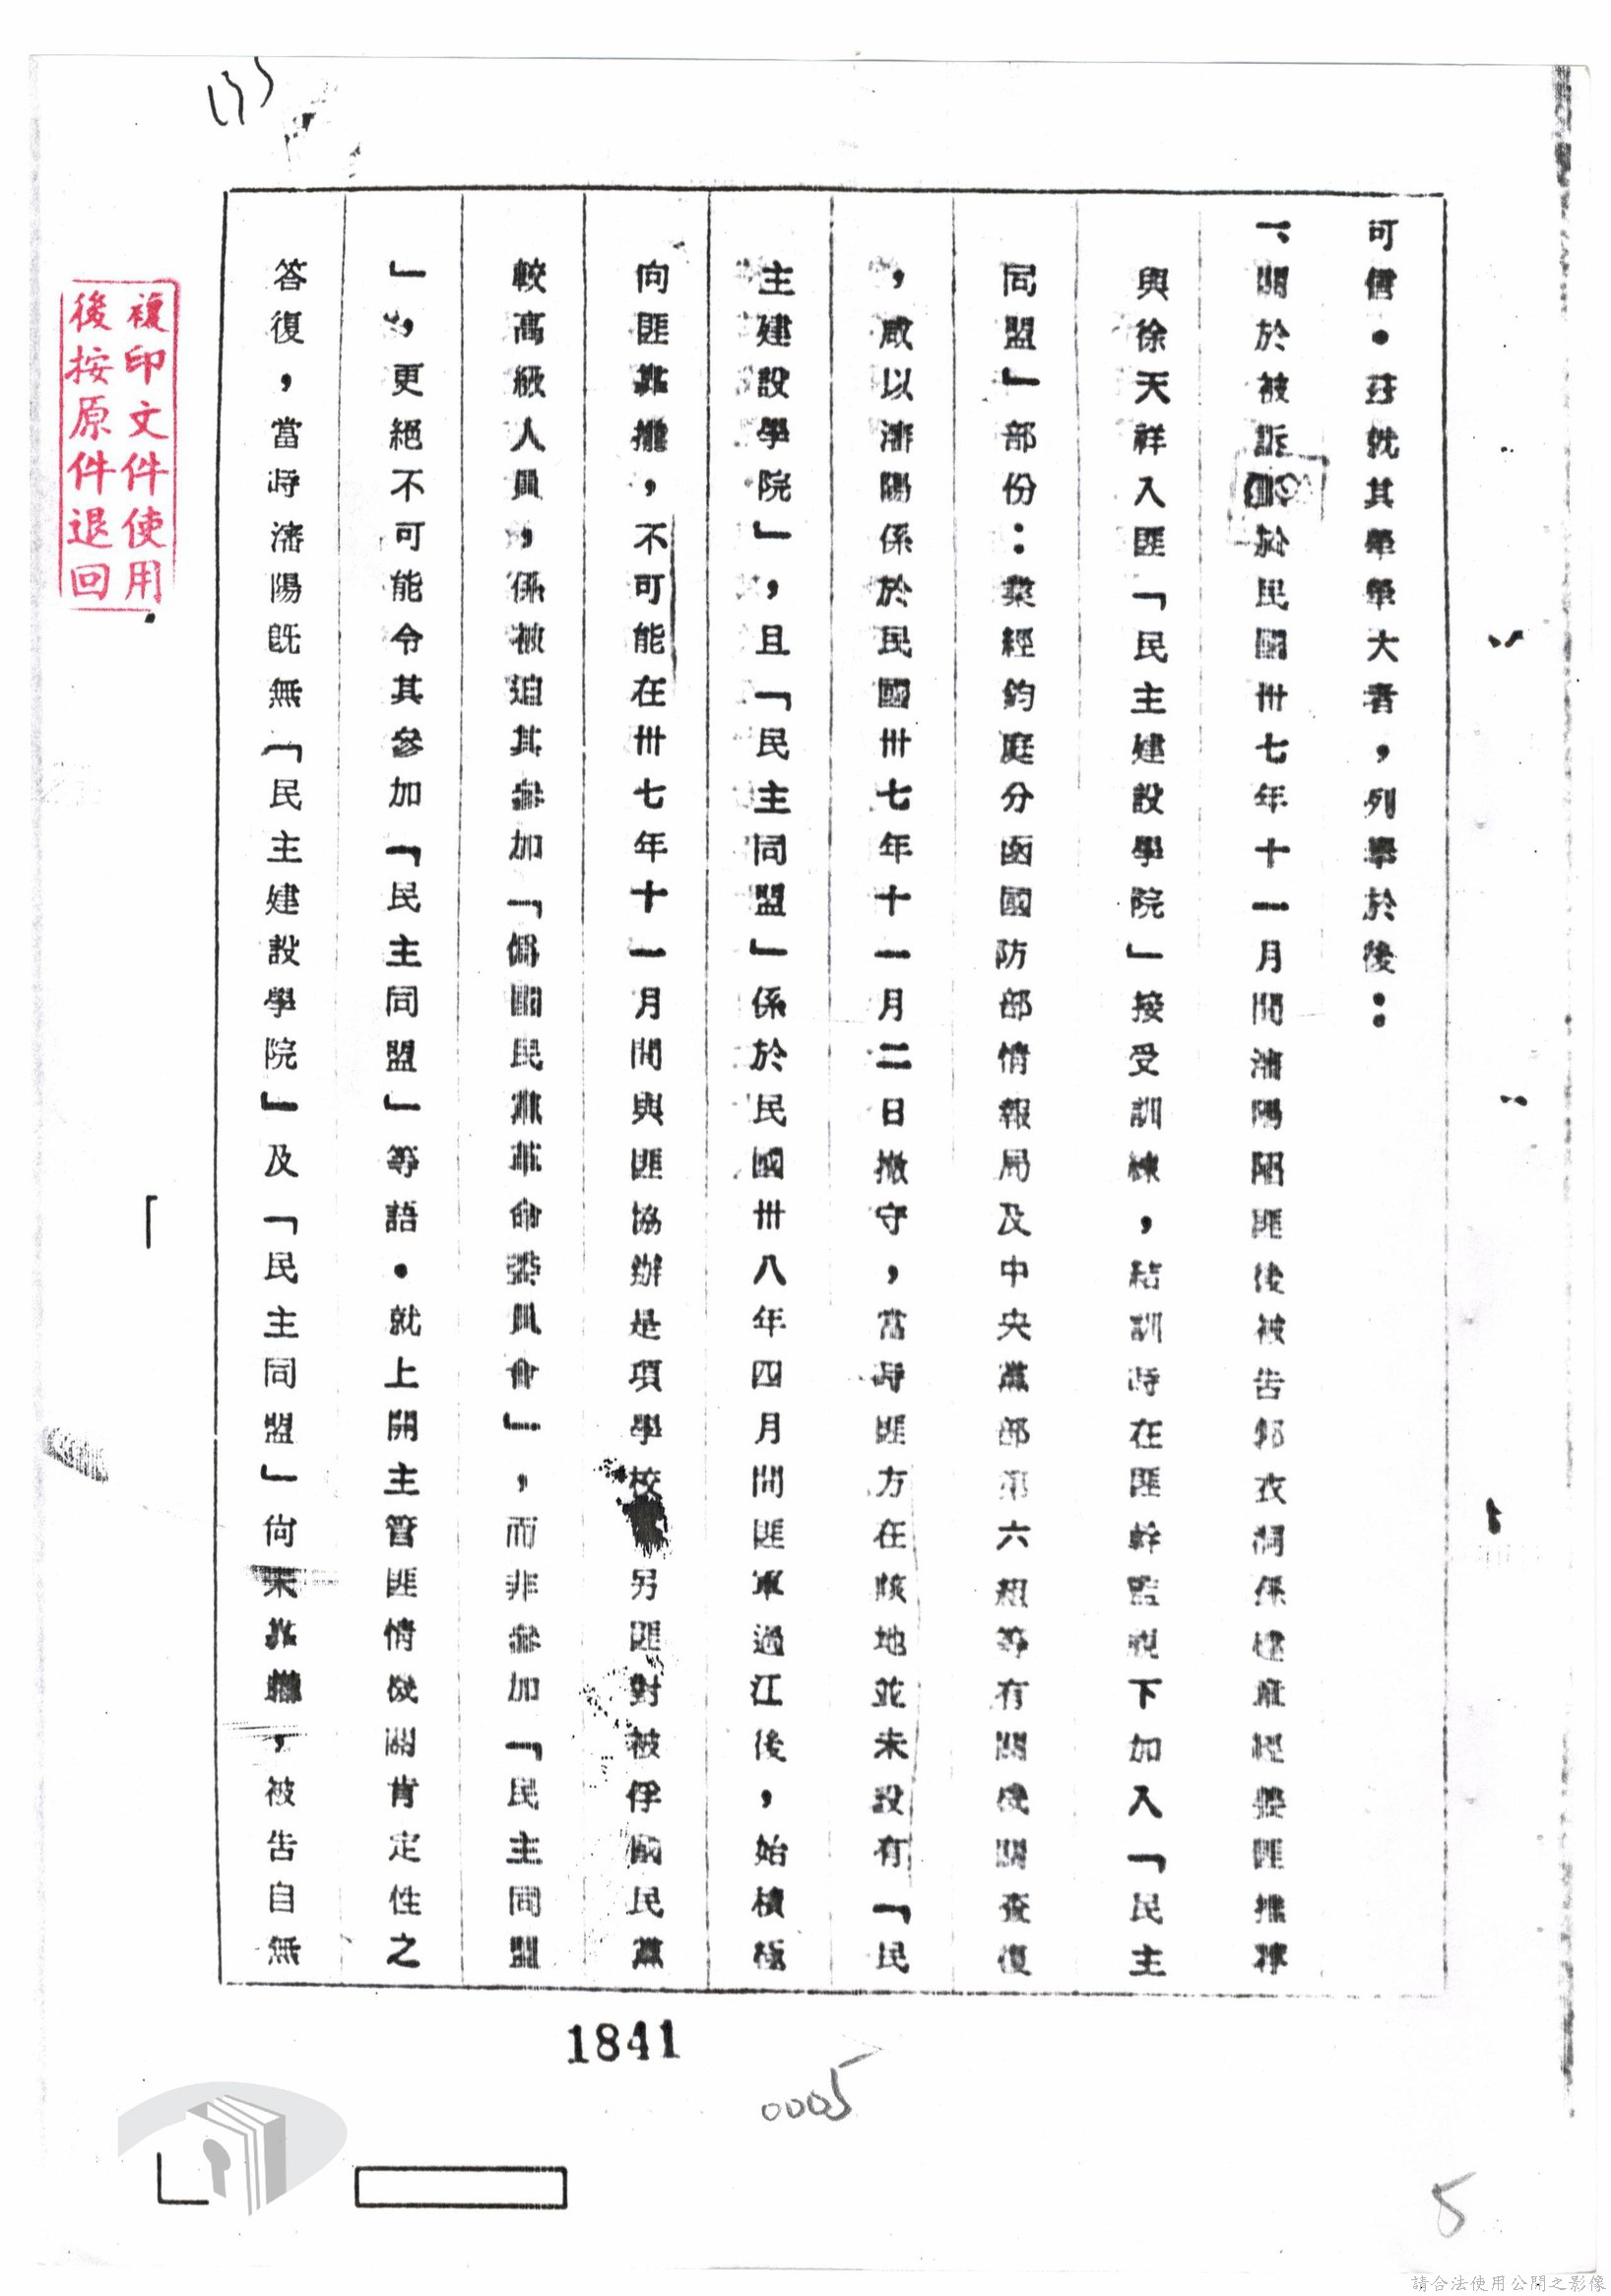 可信。茲就其犖犖大者，列舉於後：
一、關於被訴 於民國卅七年十一月間瀋陽陷匪後被告郭衣洞係 匪
與徐天祥入匪「民主建設學院」接受訓練，結訓時在匪幹監視下加入「民主
同盟」部份：業經鈞庭分函國防部情報局及中央黨部第六組等有關機關查復
，咸以瀋陽係於民國卅七年十一月二日撤守，當時匪方在該地並未設有「民
主建設學院」，且「民主同盟」係於民國卅八年四月間匪軍過江後，始積極
向匪靠攏，不可能在卅七年十一月間與匪協辦是項學校 另匪對被俘國民黨
較高級人員，係被迫其參加「偽國民黨革命委員會」，而非參加「民主同盟
」，更絕不可能令其參加「民主同盟」等語。就上開主管匪情機關肯定性之
答復，當時瀋陽既無「民主建設學院」及「民主同盟」尚未靠攏，被告自無
複印文件使用
後按原件退回
1841
0005
5
請合法使用公開之影像